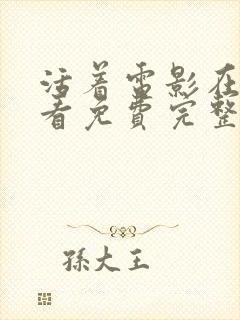 活着雷影在
看免费完整
孫大王